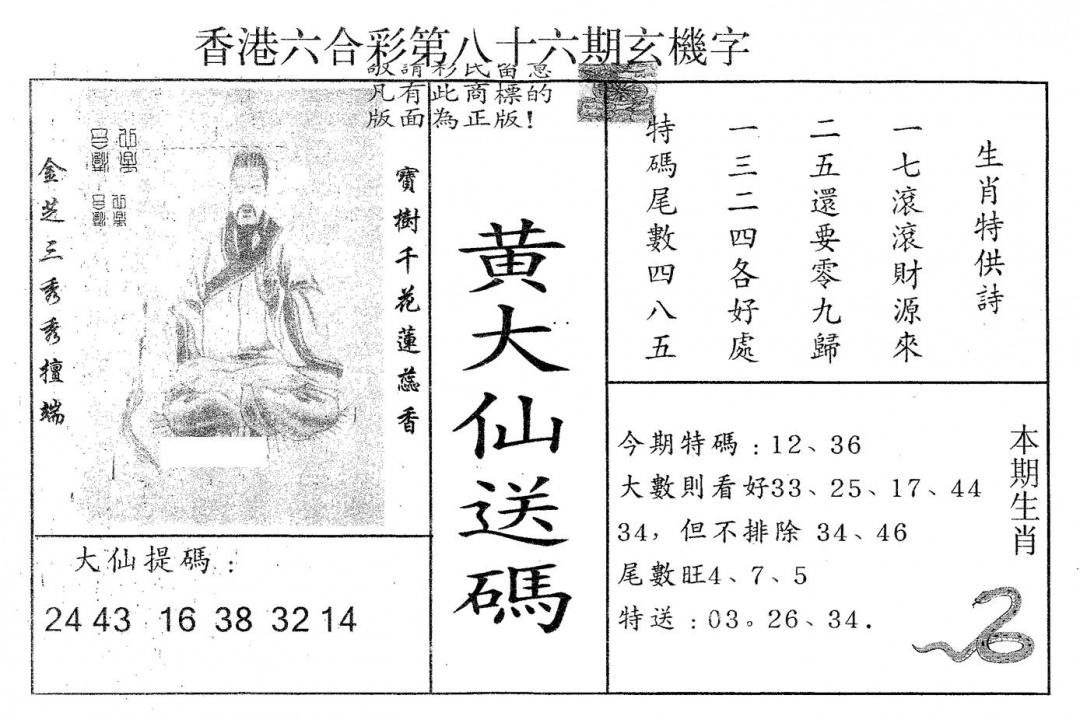 香港六合彩第八十六期玄機字
敬請彩民留意
凡有此商標的
版面為正版!
金芝三秀秀擅端
寶樹千花蓮蕊香
大仙提碼:
24 43 16 38 32 14
黃大仙送碼
生肖特供詩
一七滾滾財源來
二五還要零九歸
一三二四各好處
特碼尾數四八五
今期特碼:12、36
大數則看好33、25、17、44
34,但不排除 34、46
尾數旺4、7、5
特送:03。26、34.
本期生肖